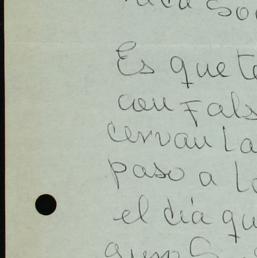 Es que te
con Fals
cervan La
paso a Lo
el día qu